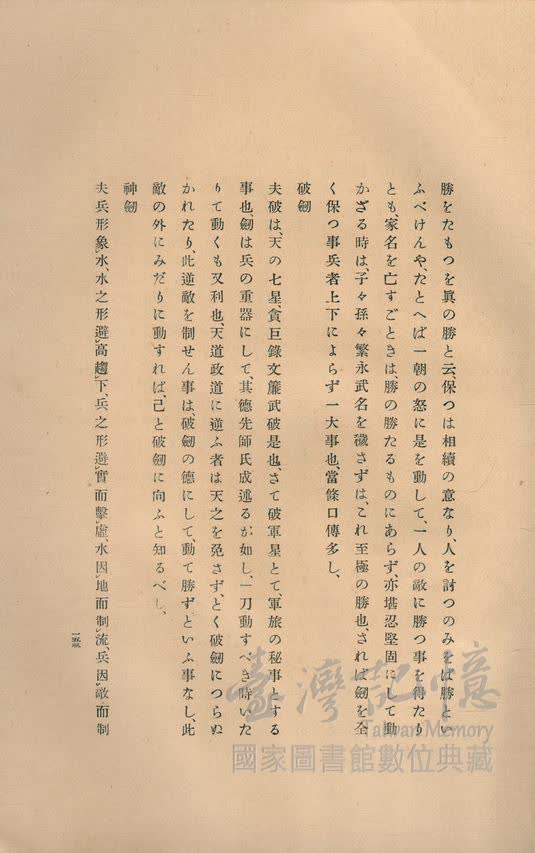 勝をたもつを眞の勝と云保つは相續の意なり、人を討つのみをば勝とい
ふべけんや、たとへば一朝の怒に是を動して、一人の敵に勝つ事を得たり
とも、家名を亡すごときは、勝の勝たるものにあらず、亦堪忍堅固にして動
かざる時は、子々孫々繁永武名を穢さずは、これ至極の勝也、されば劔を全
く保つ事兵者上下によらず一大事也、當條口傳多し、
破劔
夫破は、天の七星、貪巨錄文廉武破是也、さて破軍星とて、軍旅の秘事とする
事也、劔は兵の重器にして、其德先師氏成述るが如し、一刀動すべき時いた
りて動くも又利也、天道政道に逆ふ者は天之を免さず、とく破劔につらぬ
かれたり、此逆敵を制せん事は、破劔の德にして、動て勝ずといふ事なし、此
敵の外にみだりに動すれば、己と破劔に向ふと知るべし、
神劔
夫兵形象水、水之形避高趨下、兵之形避實而擊虛、水因地而制流、兵因敵而制
一五三
臺灣記憶
Taiwan Memory
國家圖書館數位典藏